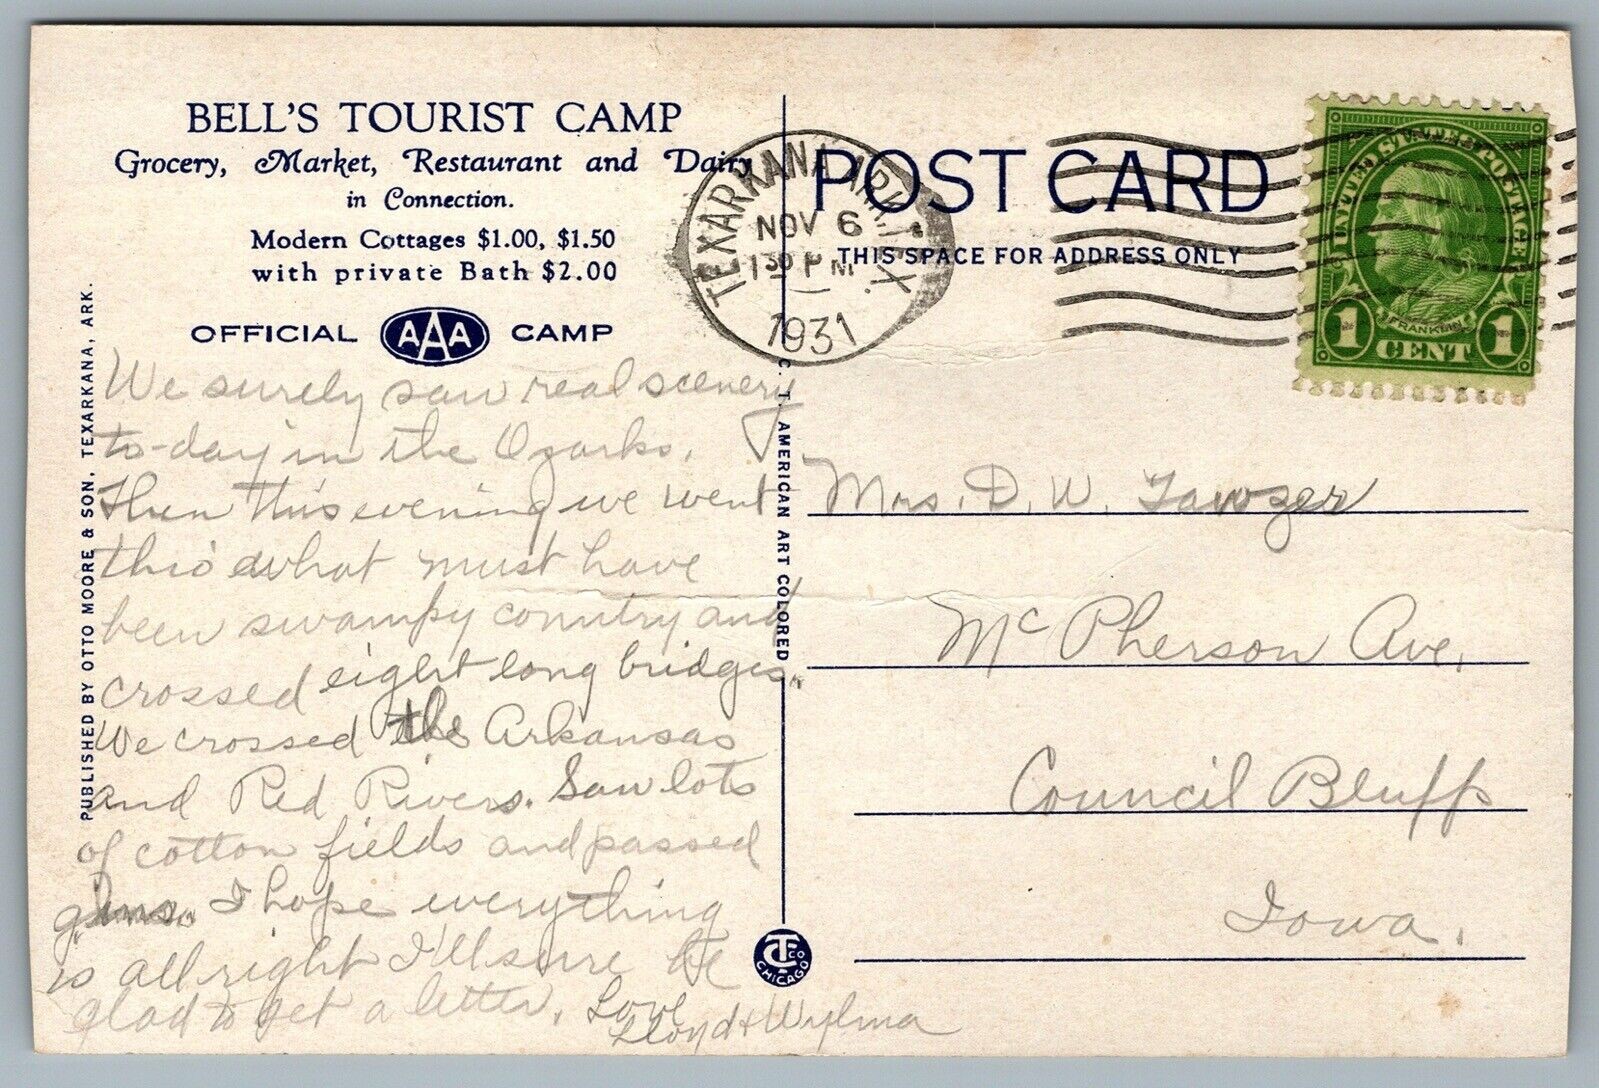 BELL'S TOURIST CAMP
Grocery, Market, Restaurant and Dairy
in Connection.
Modern Cottages $1.00, $1.50
with private Bath $2.00
OFFICIAL AAA CAMP
We surely saw real scenery
to-day in the Ozarks.
Then this evening we went
thro' what must have
been swampy country and
crossed eight long bridges.
We crossed the Arkansas
and Red Rivers. Saw lots
of cotton fields and passed
gins. I hope everything
is all right I'll sure be
glad to get a letter. Love
Lloyd & Wylma
PUBLISHED BY OTTO MOORE & SON, TEXARKANA, ARK.
C. T. AMERICAN ART COLORED
CT CO
CHICAGO
TEXARKANA, ARK.-TEX.
NOV 6
1 30 PM
1931
POST CARD
THIS SPACE FOR ADDRESS ONLY
UNITED STATES POSTAGE
FRANKLIN
1 CENT 1
Mrs. D. W. Tawzer
McPherson Ave.
Council Bluffs
Iowa.